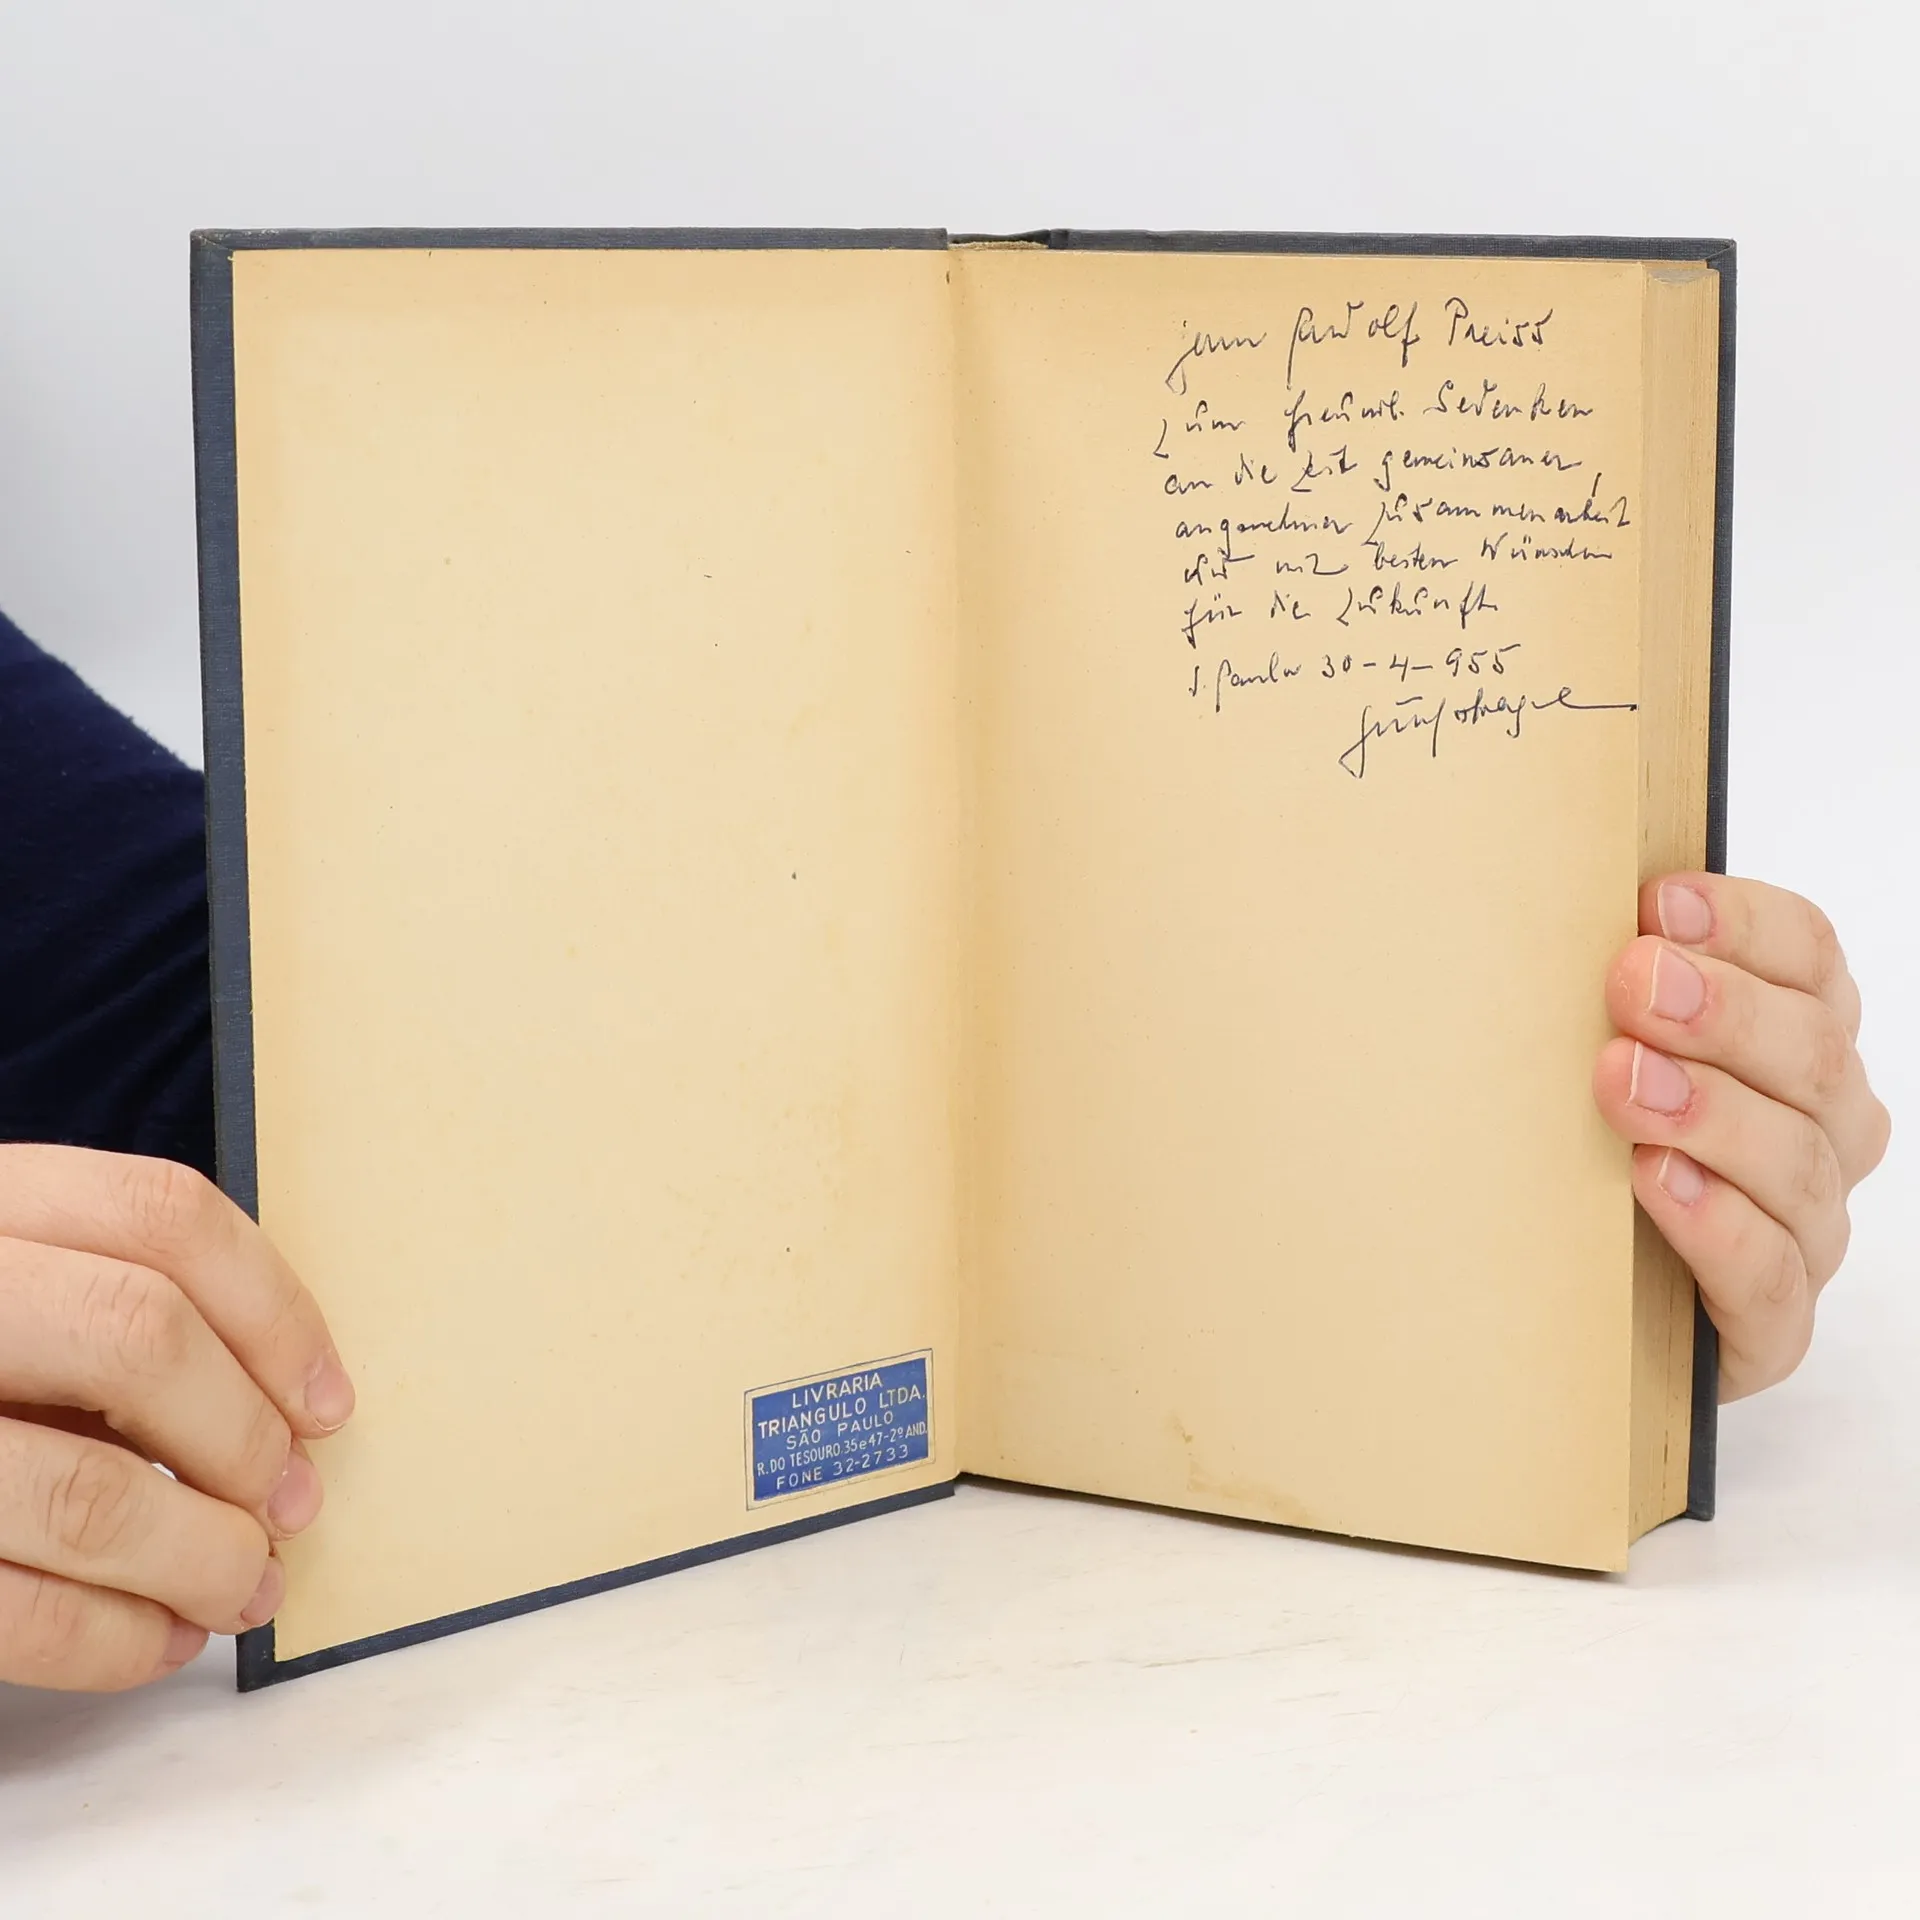 LIVRARIA
TRIANGULO LTDA.
SÃO PAULO
R. DO TESOURO, 35 e 47-2º AND.
FONE 32-2733
Rudolf Preiss
zum freundl. Gedenken
an die Zeit gemeinsamer,
angenehmer Zusammenarbeit
und mit besten Wünschen
für die Zukunft.
S. Paulo 30-4-955